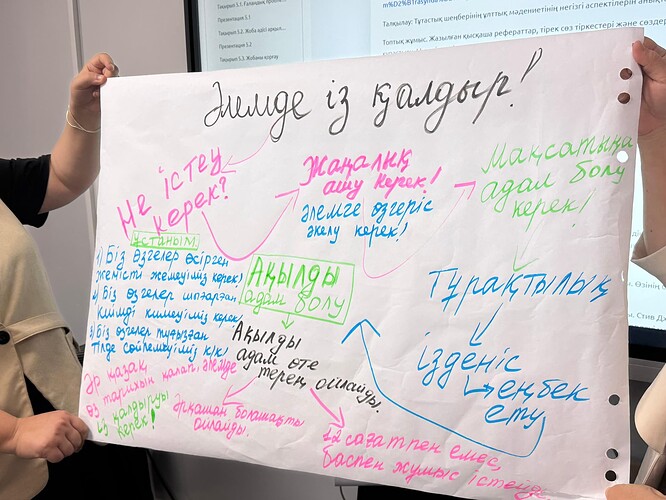 Тақырып 5.1.
Презентация 5.1
Тақырып 5.2. Жоба әдісі
Презентация 5.2
Тақырып 5.3. Жобаны қорғау
Талқылау: Тұтастық шеңберінің ұлттық мәдениетінің негізгі аспектілерін
Топтық жұмыс. Жазылған қысқаша рефераттар, тірек сөз тіркестері және сөздер
Әлемде із қалдыр!
Не істеу
керек?
Жаңалық
ашу керек!
әлемге өзгеріс
әкелу керек!
Мақсатыңа
адал болу
керек!
Ұстаным
1) Біз өзгелер өсірген
жемісті жемеуіміз керек!
2) Біз өзгелер шығарған
киімді кимеуіміз керек,
3) Біз өзгелер туғызған
тілде сөйлемеуіміз к/к!
Ақылды
адам болу
Ақылды
адам өте
терең ойлайды.
Тұрақтылық
ізденіс
еңбек
ету
Әр қазақ
өз тарихын қалап, әлемде
із қалдыруы
керек!
Әрқашан болашақты
ойлайды.
12 сағатпен емес,
баспен жұмыс істейді